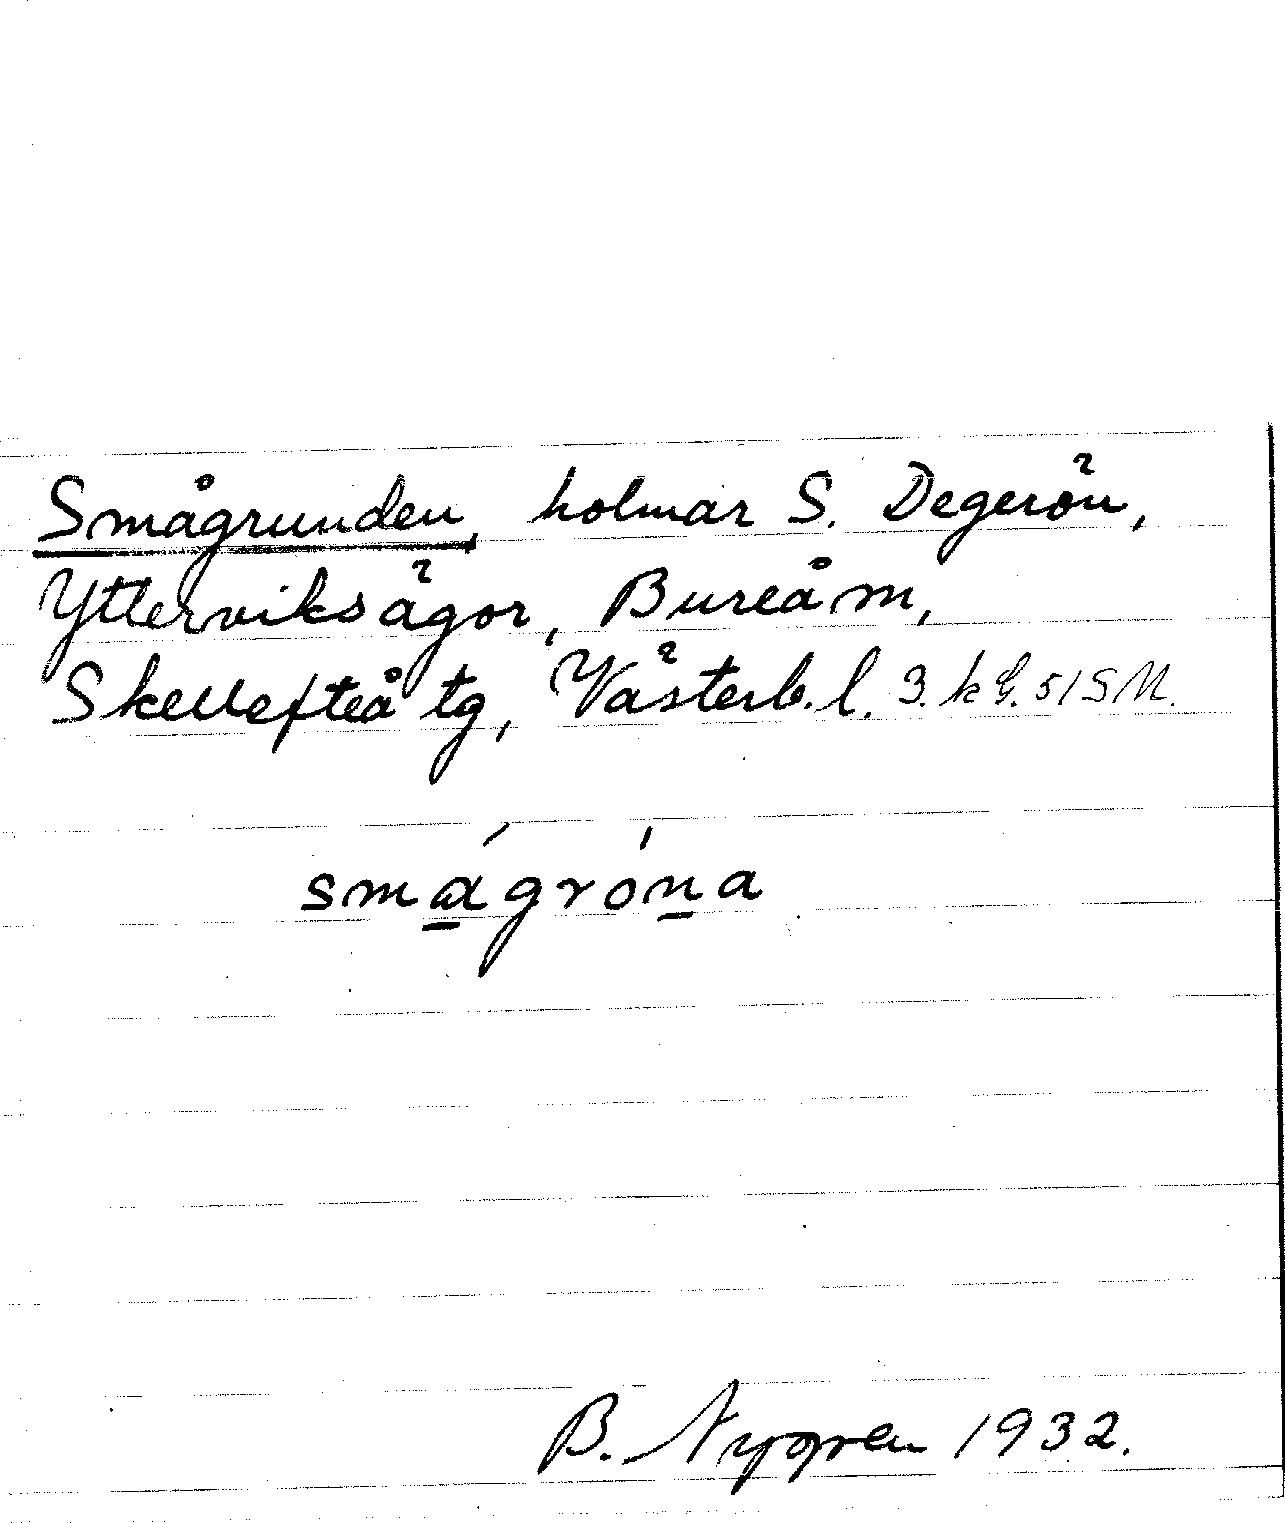 Smågrunden, holmar S. Degerön,
Ytterviksägor, Bureå m,
Skellefteå tg, Västerb. l. 3. k G. 51 S M.
smágróna
B. Nygren 1932.